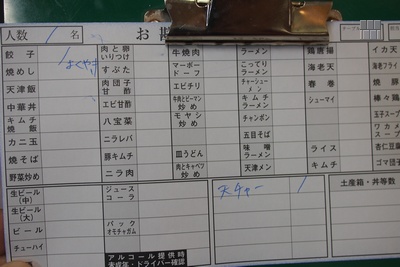 人数 1 名 お
餃子 1 よくやき 肉と卵いりつけ 牛焼肉 ラーメン 鶏唐揚 イカ天
焼めし すぶた マーボードーフ こってりラーメン 海老天 海老フライ
天津飯 肉団子甘酢 エビチリ チャーシューメン 春巻
中華丼 エビ甘酢 牛肉とピーマン炒め キムチラーメン シューマイ 棒々鶏
キムチ焼飯 八宝菜 モヤシ炒め チャンポン 玉子スープ
カニ玉 ニラレバ 五目そば ワカメスープ
焼そば 豚キムチ 皿うどん 味噌ラーメン ライス 杏仁豆腐
野菜炒め ニラ肉 肉とキャベツ炒め 天津メン キムチ ゴマ団子
生ビール(中) ジュースコーラ 天チャー 1 土産箱・丼等数
生ビール(大)
ビール パックオモチャガム
チューハイ アルコール提供時
未成年・ドライバー確認